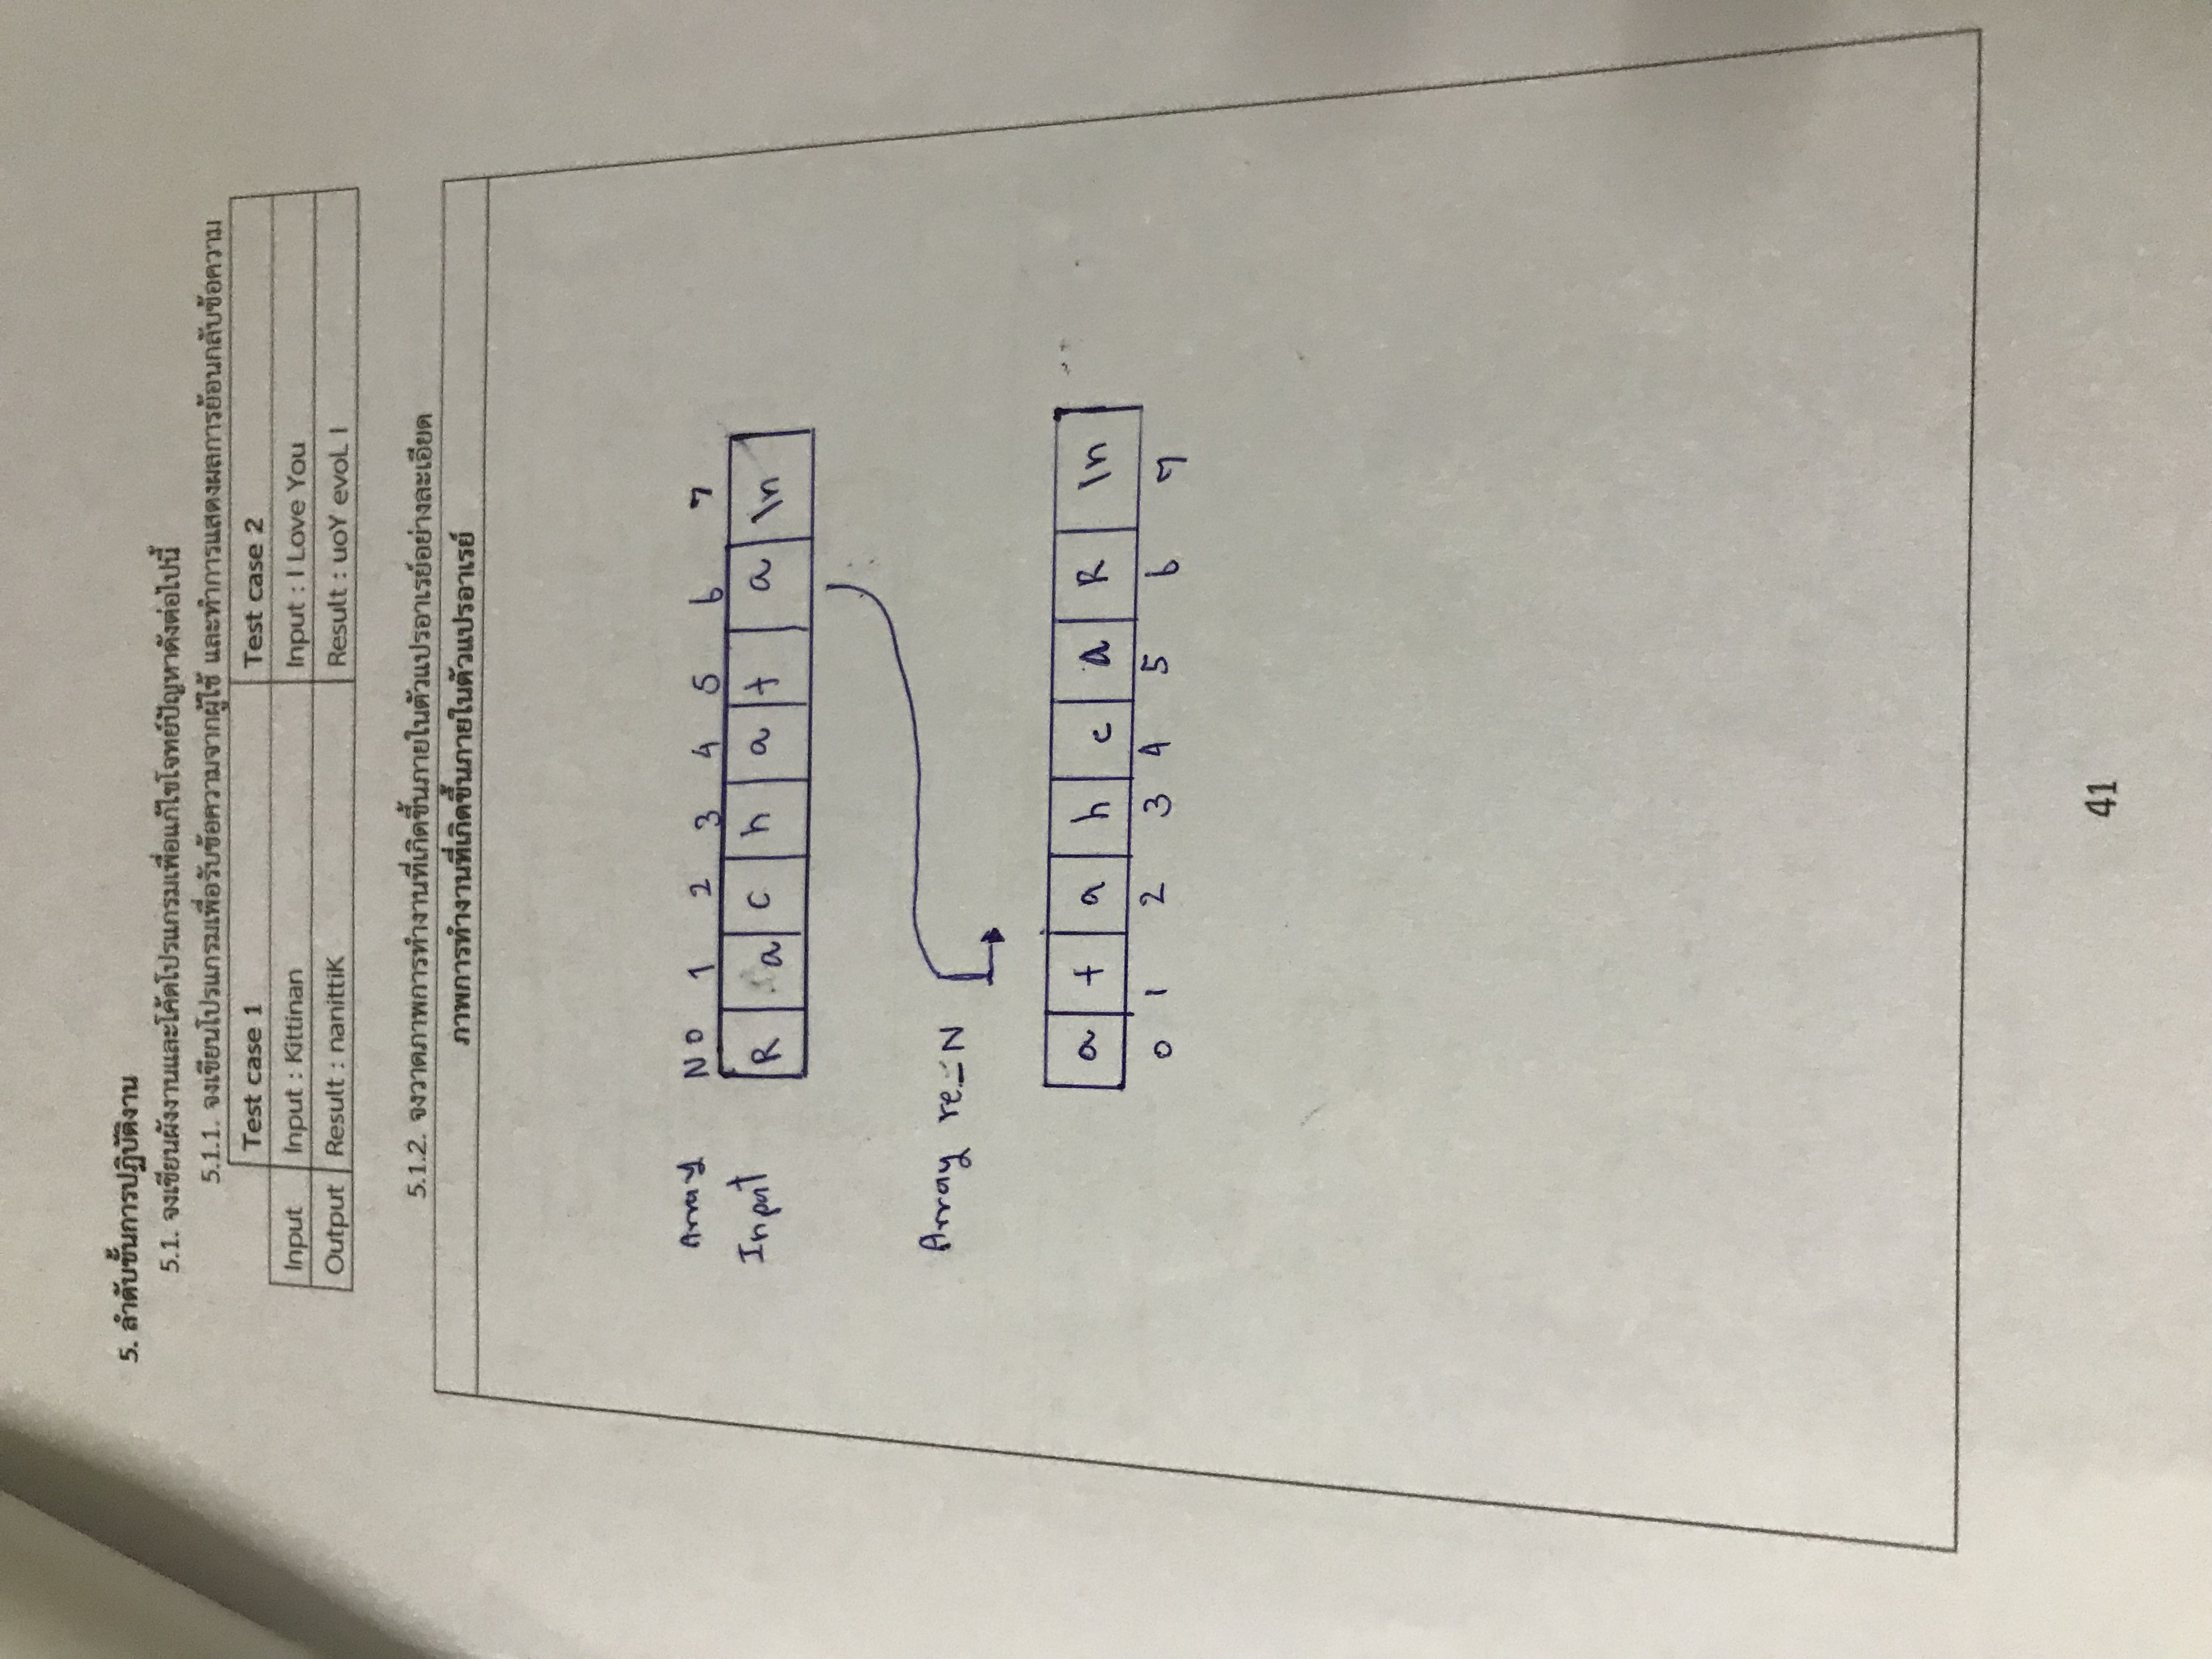 5. ลำดับขั้นการปฏิบัติงาน
5.1. จงเขียนผังงานและโค้ดโปรแกรมเพื่อแก้ไขโจทย์ปัญหาดังต่อไปนี้
5.1.1. จงเขียนโปรแกรมเพื่อรับข้อความจากผู้ใช้ และทำการแสดงผลการย้อนกลับข้อความ
Test case 1 Test case 2
Input Input : Kittinan Input : I Love You
Output Result : nanittiK Result : uoY evoL I
5.1.2. จงวาดภาพการทำงานที่เกิดขึ้นภายในตัวแปรอาเรย์อย่างละเอียด
ภาพการทำงานที่เกิดขึ้นภายในตัวแปรอาเรย์
Array N 0 1 2 3 4 5 6 7
Input R a c h a t a \n
Array re_N
a t a h c a R \n
0 1 2 3 4 5 6 7
41